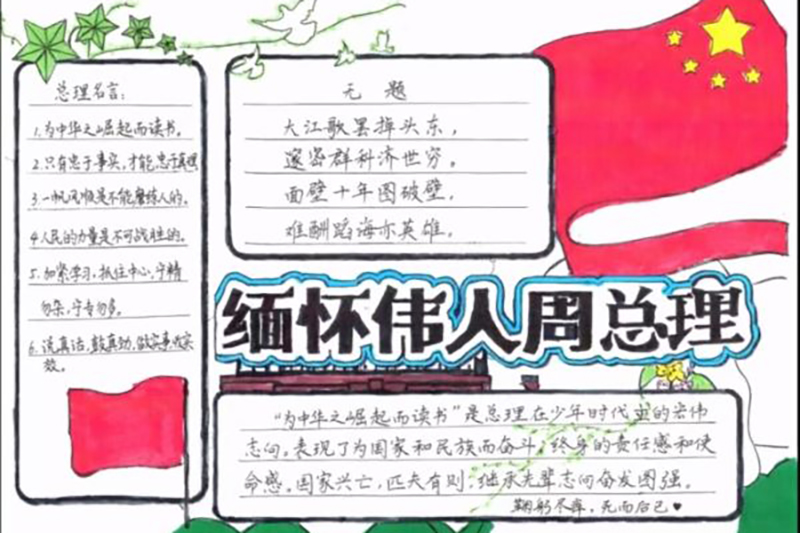 总理名言:
1.为中华之崛起而读书。
2.只有忠于事实,才能忠于真理
3.一帆风顺是不能磨练人的。
4.人民的力量是不可战胜的。
5.加紧学习,抓住中心,宁精
勿杂,宁专勿多。
6.说真话,鼓真劲,做实事,收实
效。
无题
大江歌罢掉头东,
邃密群科济世穷。
面壁十年图破壁,
难酬蹈海亦英雄。
缅怀伟人周总理
“为中华之崛起而读书”是总理在少年时代立的宏伟
志向。表现了为国家和民族而奋斗,终身的责任感和使
命感。国家兴亡,匹夫有则,继承先辈志向奋发图强。
鞠躬尽瘁,死而后已